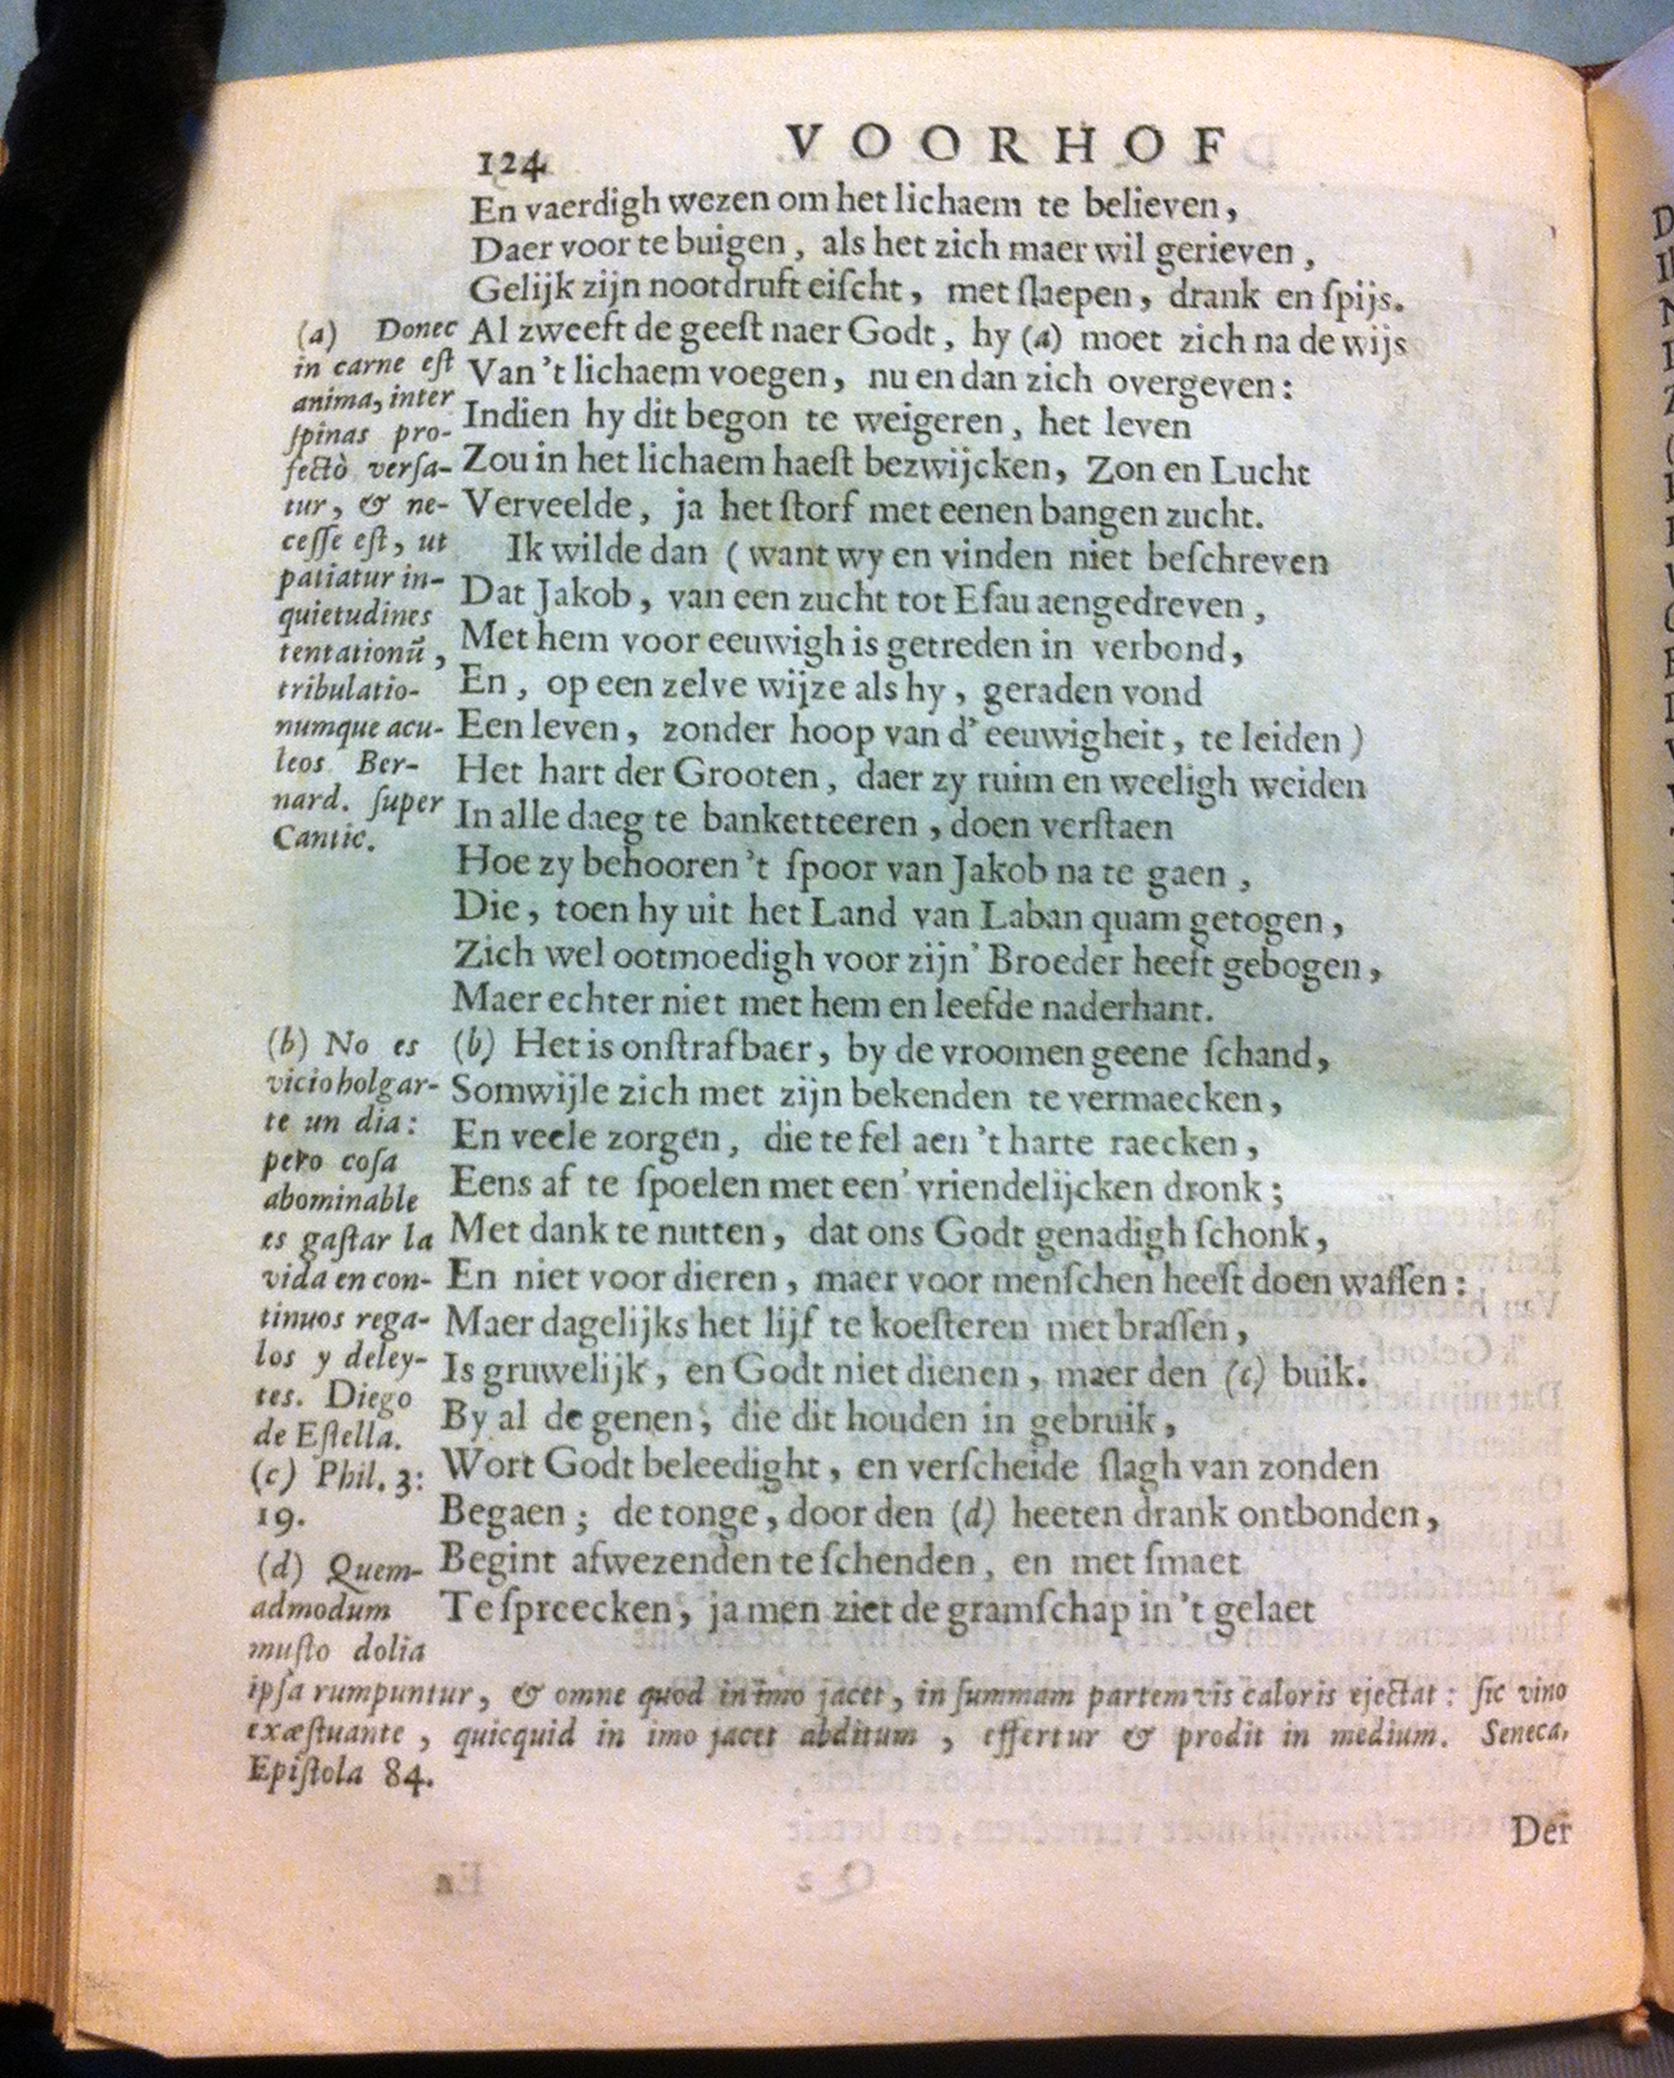 124 VOORHOF
En vaerdigh wezen om het lichaem te believen,
Daer voor te buigen, als het zich maer wil gerieven,
Gelijk zijn nootdruft eiſcht, met ſlaepen, drank en ſpijs.
Al zweeft de geeſt naer Godt, hy (a) moet zich na de wijs
Van 't lichaem voegen, nu en dan zich overgeven:
Indien hy dit begon te weigeren, het leven
Zou in het lichaem haeſt bezwijcken, Zon en Lucht
Verveelde, ja het ſtorf met eenen bangen zucht.
Ik wilde dan (want wy en vinden niet beſchreven
Dat Jakob, van een zucht tot Eſau aengedreven,
Met hem voor eeuwigh is getreden in verbond,
En, op een zelve wijze als hy, geraden vond
Een leven, zonder hoop van d' eeuwigheit, te leiden)
Het hart der Grooten, daer zy ruim en weeligh weiden
In alle daeg te banketteeren, doen verſtaen
Hoe zy behooren 't ſpoor van Jakob na te gaen,
Die, toen hy uit het Land van Laban quam getogen,
Zich wel ootmoedigh voor zijn' Broeder heeft gebogen,
Maer echter niet met hem en leefde naderhant.
(b) Het is onſtrafbaer, by de vroomen geene ſchand,
Somwijle zich met zijn bekenden te vermaecken,
En veele zorgen, die te fel aen 't harte raecken,
Eens af te ſpoelen met een' vriendelijcken dronk;
Met dank te nutten, dat ons Godt genadigh ſchonk,
En niet voor dieren, maer voor menſchen heeft doen waſſen:
Maer dagelijks het lijf te koeſteren met braſſen,
Is gruwelijk, en Godt niet dienen, maer den (c) buik.
By al de genen, die dit houden in gebruik,
Wort Godt beleedight, en verſcheide ſlagh van zonden
Begaen; de tonge, door den (d) heeten drank ontbonden,
Begint afwezenden te ſchenden, en met ſmaet
Te ſpreecken, ja men ziet de gramſchap in 't gelaet
(a) Donec
in carne eſt
anima, inter
ſpinas pro-
fectò verſa-
tur, & ne-
ceſſe eſt, ut
patiatur in-
quietudines
tentationū,
tribulatio-
numque acu-
leos Ber-
nard. ſuper
Cantic.
(b) No es
vicio holgar-
te un dia:
pero coſa
abominable
es gaſtar la
vida en con-
tinuos rega-
los y deley-
tes. Diego
de Eſtella.
(c) Phil. 3:
19.
(d) Quem-
admodum
muſto dolia
ipſa rumpuntur, & omne quod in imo jacet, in ſummam partem vis caloris ejectat: ſic vino
exæſtuante, quicquid in imo jacet abditum, effertur & prodit in medium. Seneca,
Epiſtola 84.
Der